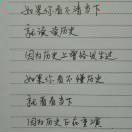 如果你看不清当下
就读读历史
因为历史上曾经发生过
如果你看不懂历史
就看看当下
因为历史正在重演